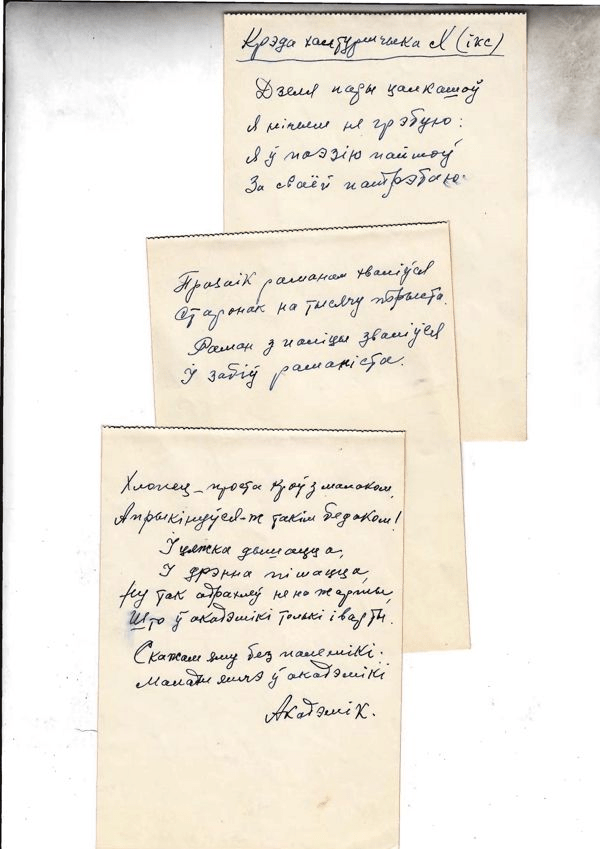 Крэда халтуршчыка X (ікс)
Дзеля пары цалкашоў
Я нічым не грэбую:
Я ў паэзію пайшоў
За сваёй патрэбаю.
Празаік раманам хваліўся
Старонак на тысячу порыста.
Раман з паліцы зваліўся
І забіў раманіста.
Хлопец – проста кроў з малаком,
А прыкінуўся-ж такім бедаком!
І цяжка дышацца,
І дрэнна пішацца,
Ну так адрахлеў не на жарты,
Што ў акадэмікі толькі і варты.
Скажам яму без палемікі:
Малады яшчэ ў акадэмікі
Акадэмік.